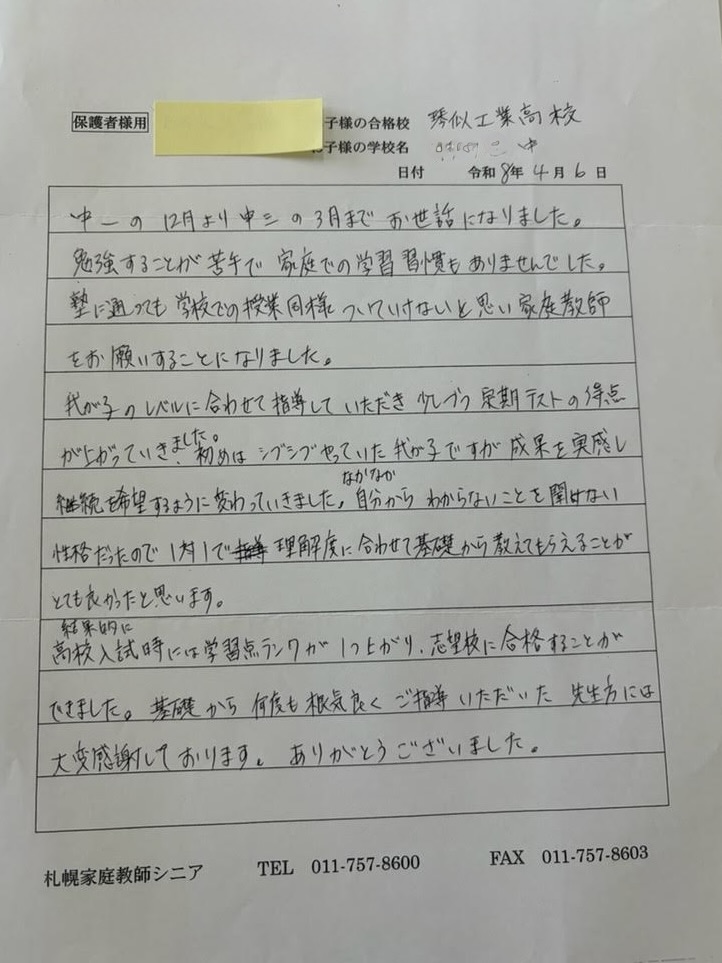 保護者様用
子様の合格校 琴似工業高校
お子様の学校名 中
日付 令和8年4月6日
中一の12月より中三の3月までお世話になりました。
勉強することが苦手で家庭での学習習慣もありませんでした。
塾に通っても学校での授業同様ついていけないと思い家庭教師
をお願いすることになりました。
我が子のレベルに合わせて指導していただき少しづつ定期テストの得点
が上がっていきました。初めはシブシブやっていた我が子ですが成果を実感し
継続を希望するように変わっていきました。自分からなかなかわからないことを聞けない
性格だったので1対1で理解度に合わせて基礎から教えてもらえることが
とても良かったと思います。
結果的に
高校入試時には学習点ランクが1つ上がり、志望校に合格することが
できました。基礎から何度も根気良くご指導いただいた先生方には
大変感謝しております。ありがとうございました。
札幌家庭教師シニア TEL 011-757-8600 FAX 011-757-8603